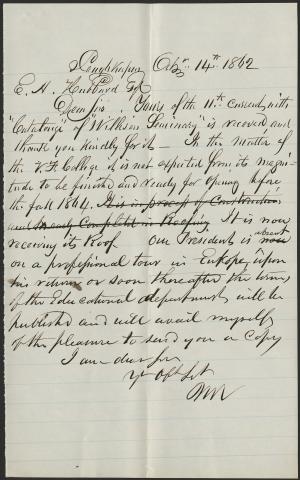 Poughkeepsie Octbr 14th 1862
E. N. Hubbard Esq
Dear Sir. Yours of the 11th current, with
"Catalogue of "Willkison Seminary" is received and
thank you kindly for it – In the matter of
the V. F. College it is not expected from its magni-
tude to be finished and ready for opening before
the fall 1864. It is in process of Construction
and nearly Complete in Roofing It is now
receiving its Roof Our President is now absent
on a professional tour in Europe, upon
his return or soon thereafter the terms
of the Educational department will be
published and will avail myself
of the pleasure to send you a Copy
I am dear sir
Yr Obt Svt